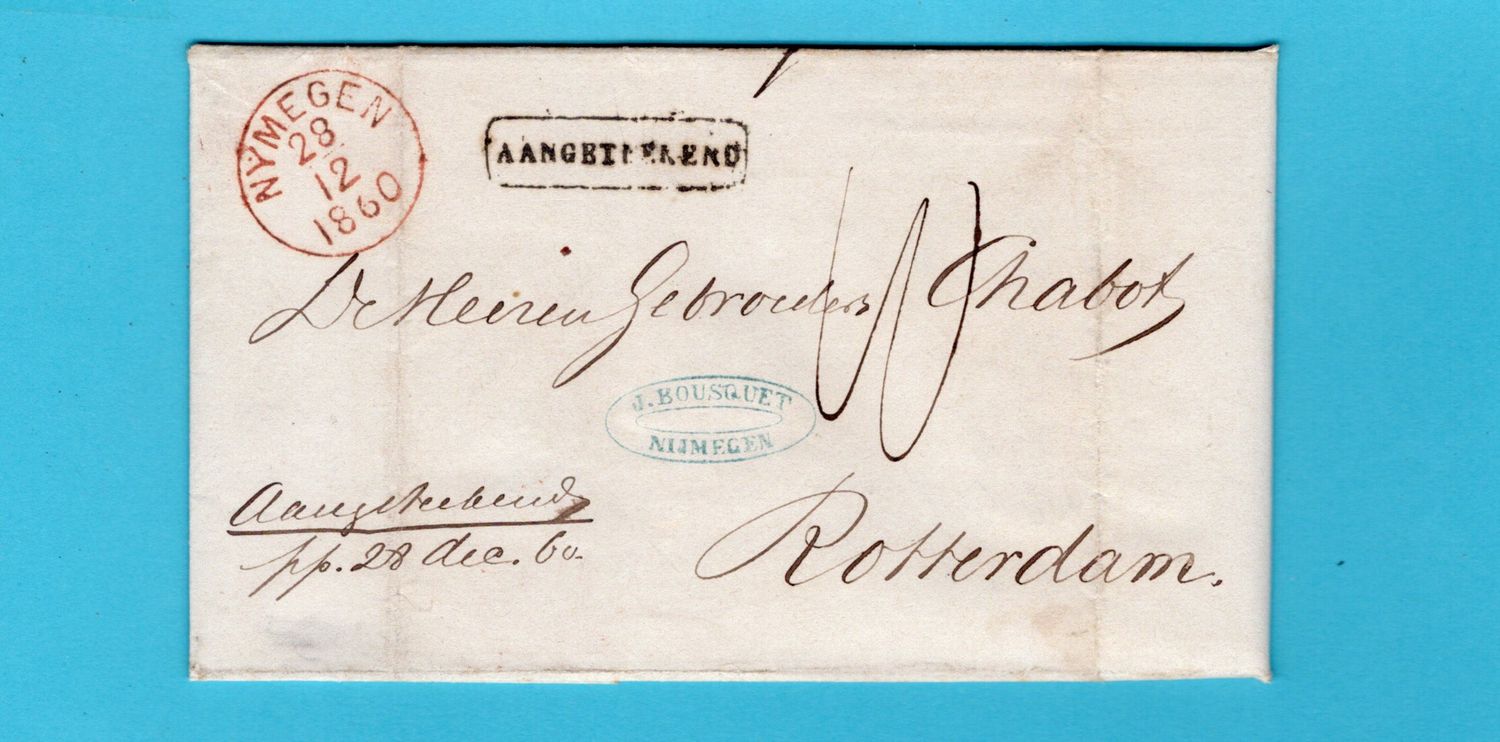 NYMEGEN
28
12
1860
AANGETEKEND
De Heeren Gebroeders Chabot
J. BOUSQUET
NIJMEGEN
Aangetekend
pp. 28 dec. 60.
Rotterdam.